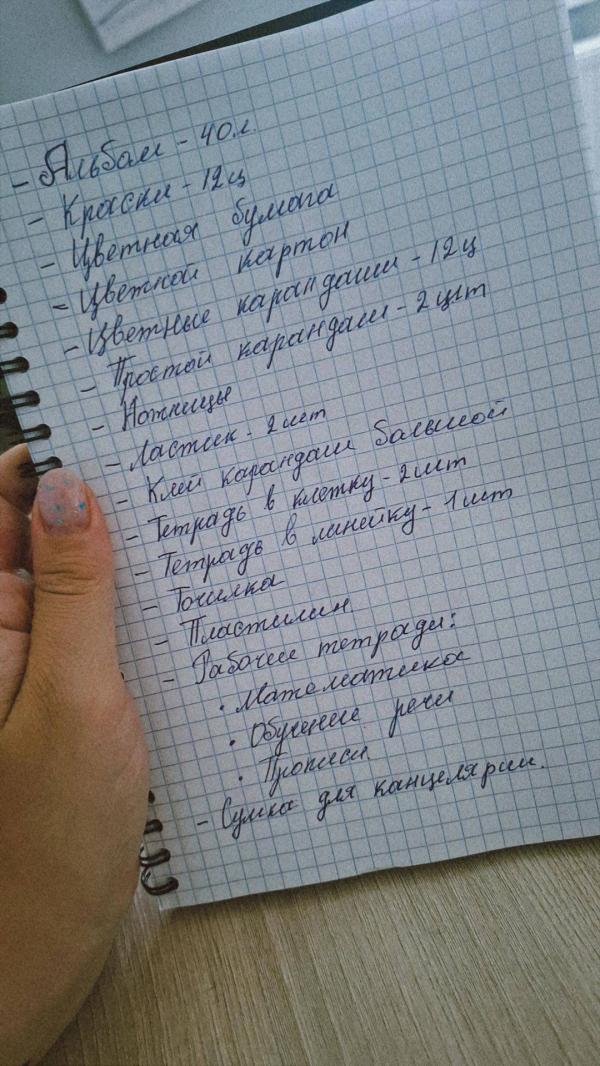 - Альбом - 40л.
- Краски - 12ц
- Цветная бумага
- Цветной картон
- Цветные карандаши - 12ц
- Простой карандаш - 2 шт
- Ножницы
- Ластик - 2 шт
- Клей карандаш большой
- Тетрадь в клетку - 2 шт
- Тетрадь в линейку - 1 шт
- Точилка
- Пластилин
- Рабочие тетради:
• Математика
• Обучение речи
• Прописи
- Сумка для канцелярии.